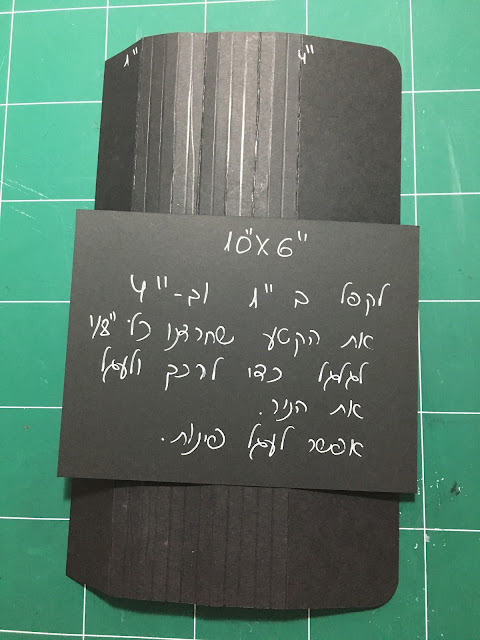 1"
4"
10"X6"
לקפל ב 1" וב-4"
את הקטע שחרצנו כל 1/8"
לגלגל כדי לרכך ולעגל
את הנייר.
אפשר לעגל פינות.